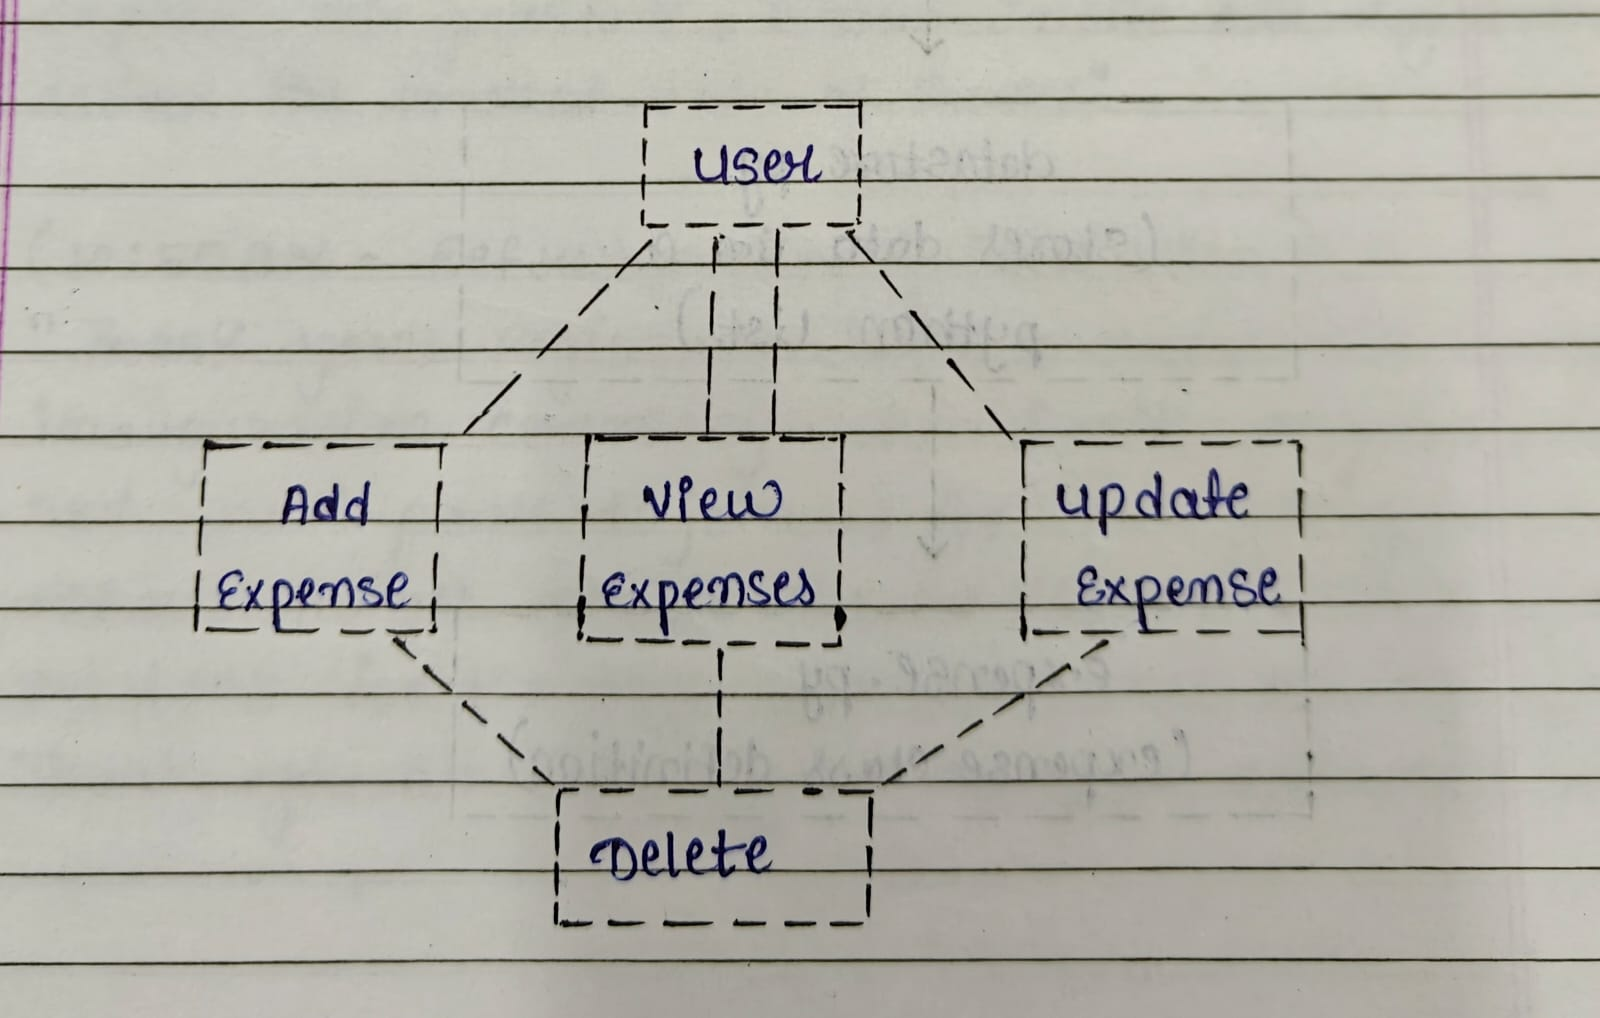 user
Add
Expense
View
Expenses
update
Expense
Delete